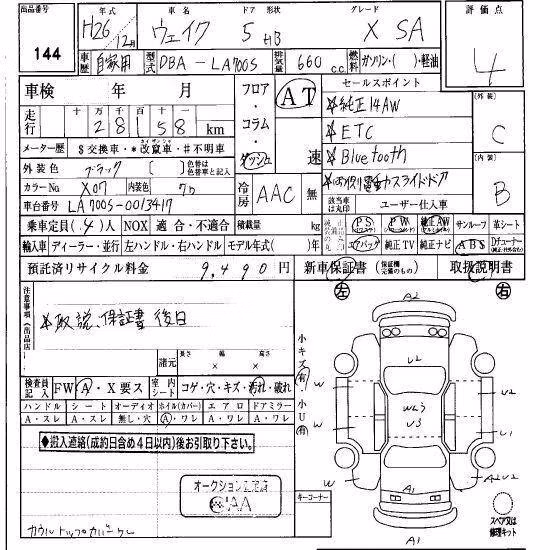 商品番号 144
年式 H26年12月 車名 ウェイク ドア 5 形状 HB グレード X SA 評価点 4
車歴 自家用 型式 DBA-LA700S 排気量 660 c.c. 燃料 ガソリン・( )・軽油
車検 年 月
フロア・コラム・ダッシュ
AT 速
セールスポイント
☆純正14AW
☆ETC
☆Bluetooth
外装 C
内装 B
走行 十万千百十 28158 km
メーター歴 $交換車・*改竄車・#不明車
外装色 ブラック ( ) 色替は色替車と記入
カラーNo X07 内装色 クロ
冷房 AAC 無
該当車は丸印 ユーザー仕入車
車台番号 LA700S-0013417
乗車定員 (4)人 NOX 適合・不適合 積載量 kg
PS PW AW サンルーフ 革シート
輸入車 ディーラー・並行 左ハンドル・右ハンドル モデル年式( )年
エアバッグ 純正TV 純正ナビ ABS Dチューナー
預託済リサイクル料金 9,490円 新車保証書 (保証継続完備のもの) 取扱説明書
注意事項(出品店)
☆取説、保証書 後日
諸元 長さ 幅 高さ × ×
左 右
小キズ(有) 小U(有)
検査員記入 FW A・X要ス 室内シート コゲ・穴・キズ・汚れ・破れ
ハンドル シート オーディオ ホイル(カバー) エアロ ドアミラー
A・スレ A・スレ 無し・穴 A・ワレ A・ワレ A・ワレ
◆搬入連絡(成約日含め4日以内)後お引取り下さい。
オークション
CIAA
キーコーナー
カウルトップカバーワレ
A2
U2
W
U2
W23
U3
W
U1
W
A1
A1
スペア又は修理キット